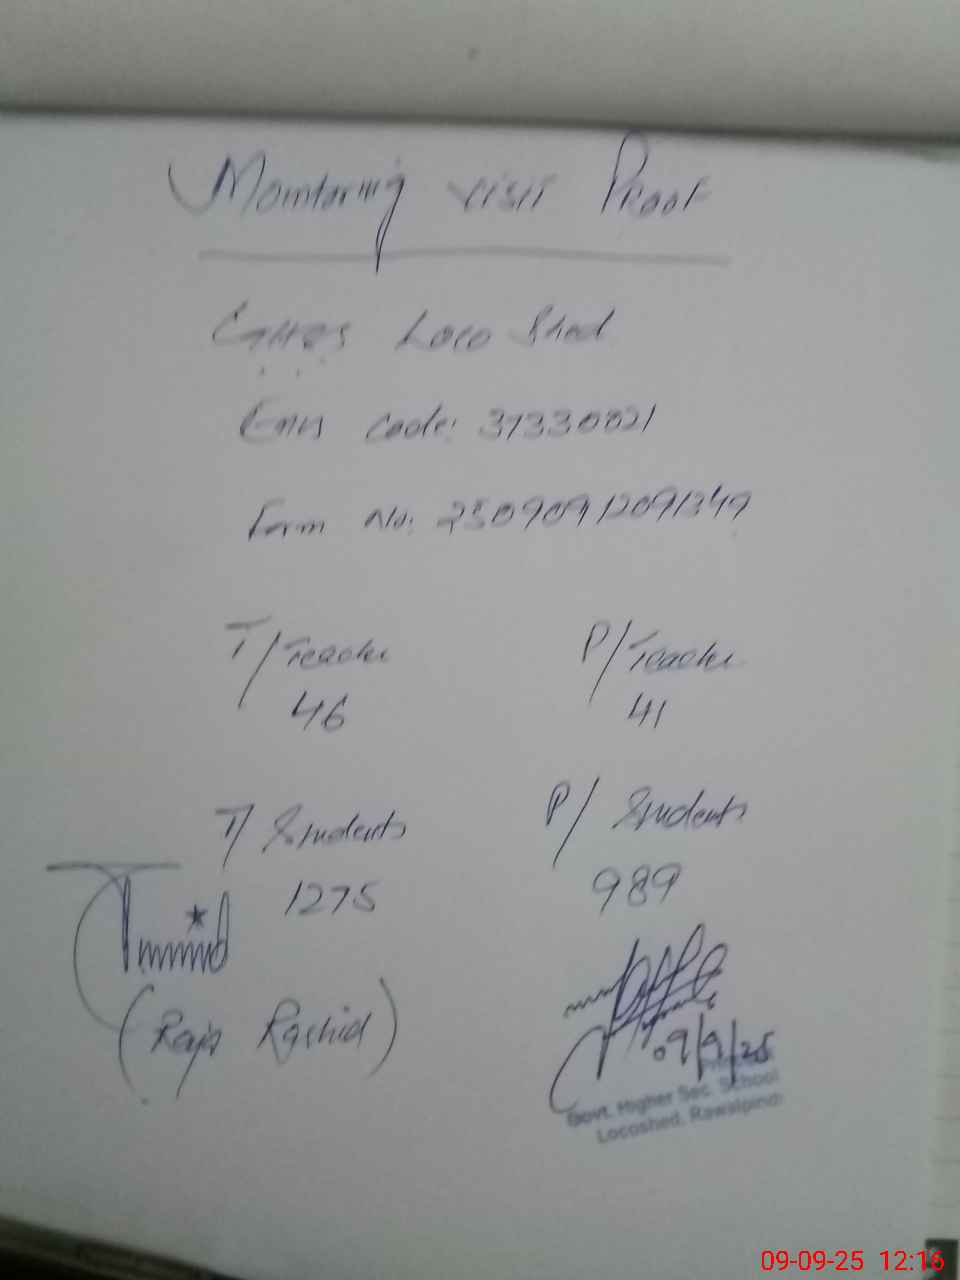 Monitoring visit Proof
GHSS Loco Shed
Emis code: 37330821
Form No: 25090912091349
T/Teacher P/Teacher
46 41
T/Students P/Students
1275 989
(Raja Rashid)
09/9/25
Govt. Higher Sec. School
Locoshed, Rawalpindi
09-09-25 12:16